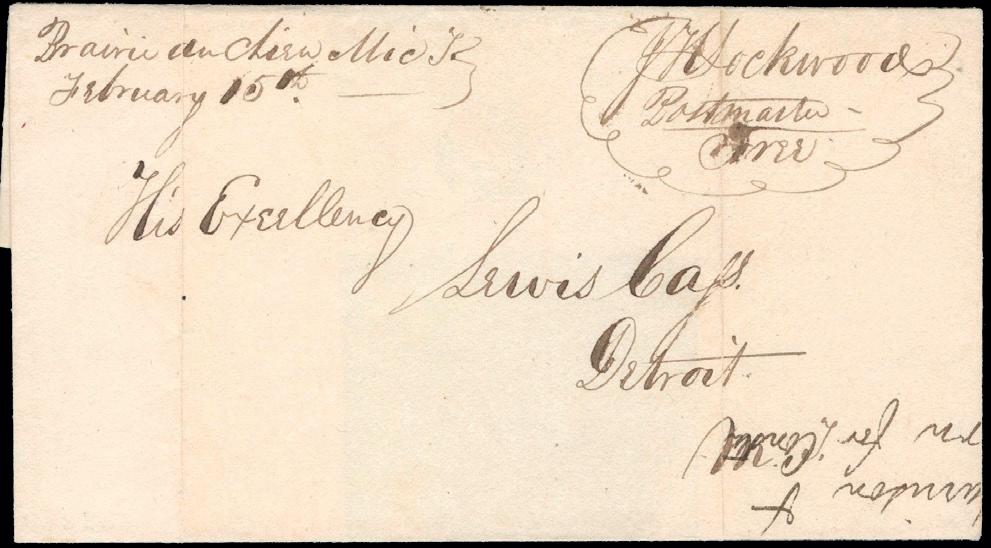 Prairie du Chien Mic T.
February 15th.
J H Lockwood
Postmaster
Free
His Excellency
Lewis Cass.
Detroit.